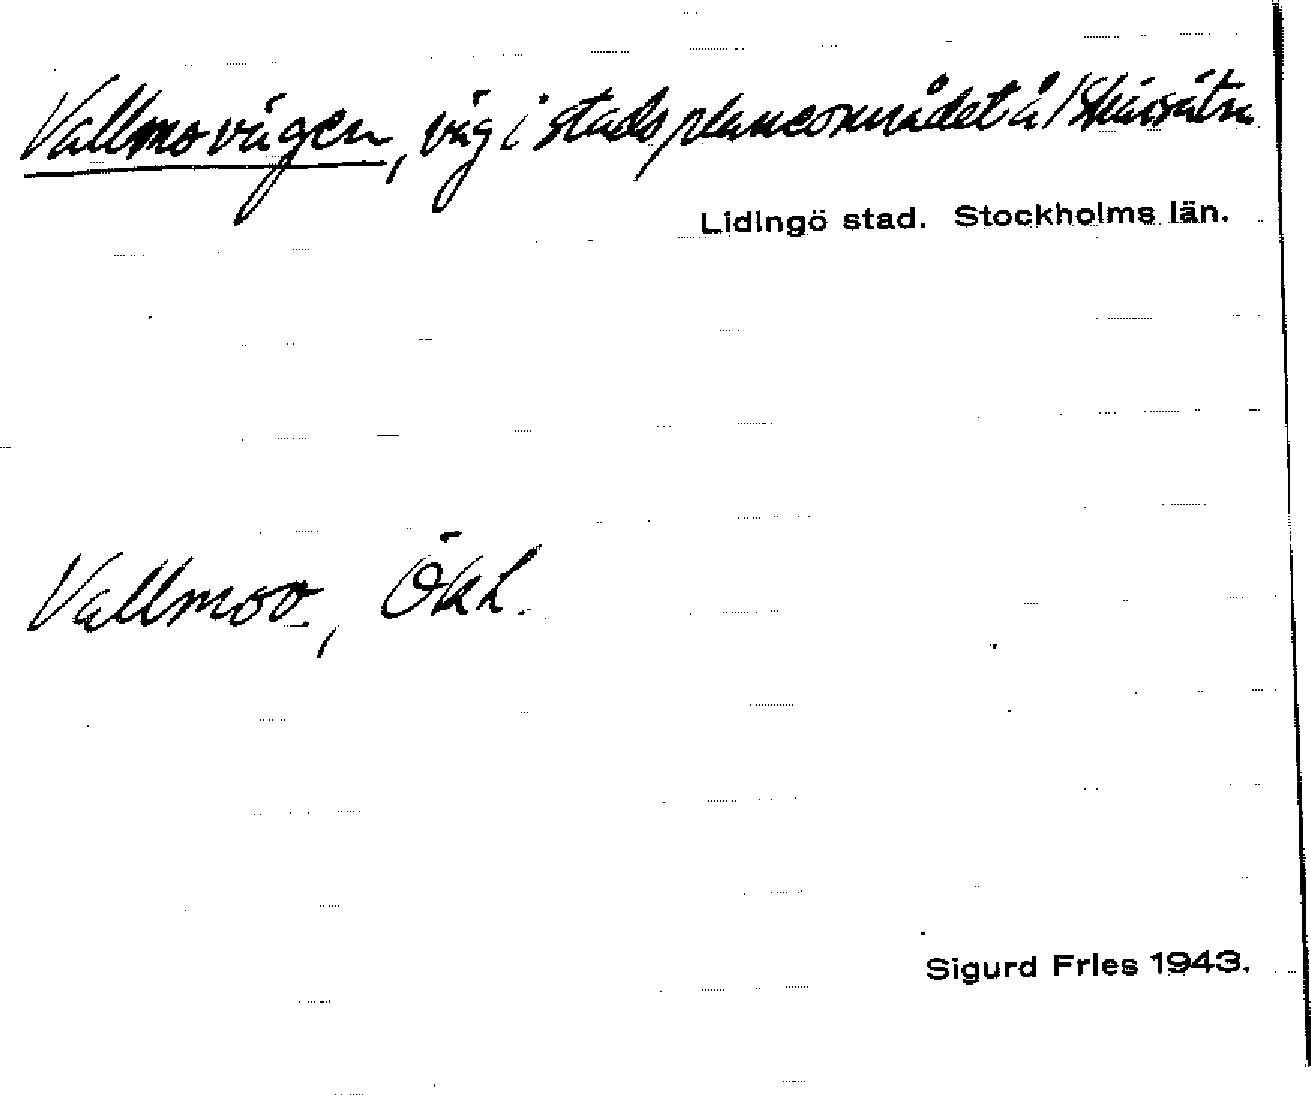 Vallmovägen, väg i stadsplaneområdet å/Skärsätra
Lidingö stad. Stockholms län.
Vallmov., Ökl.
Sigurd Fries 1943.